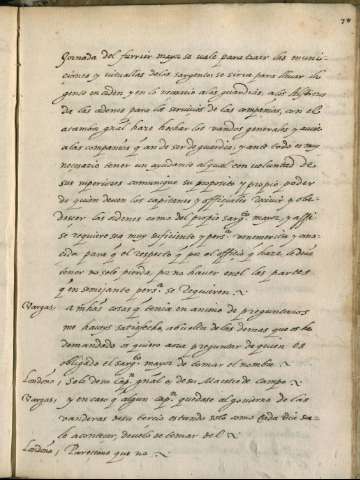 78
Jornada del furrier mayor se vale para traer las munici-
ciones y vituallas de los sargentos se sirve para llevar la
gente en orden y en lo necesario a las guardias, a los
de las adenes para los servicios de las compañias, con el
atambor gnal haze hechar los vandos generales y avisa
a las compañias q̃ an de ser de guardia, y ante todo es muy
necesario tener un ayudante al qual con voluntad de
sus superiores comunique su proposito y propio poder
de quien deven los capitanes y officiales recivir y obe-
descer las ordenes como del propio sargto mayor, y assi
se requiere sea muy suficiente y persa venemerita y
para q̃ el respecto q̃ por el officio q̃ haze, se deve
tener no solo pierda, por no haver en el las partes
q̃ en semejante persa se requieren.
Vargas, a muchas cosas q̃ tenia en animo de preguntaros
me haveys satisfecho, absuelto de las demas que os he
demandado os quiero aora preguntar de quien es
obligado el sargto mayor de tomar el nombre.
Londoño, Solo de su capn gnal o de su Maestre de campo.
Vargas, y en caso q̃ algun capn quedase al govierno de las
vanderas de su tercio estando solo como cada dia sue-
le acontecer, develo de tomar del
Londoño, Paresceme que no.